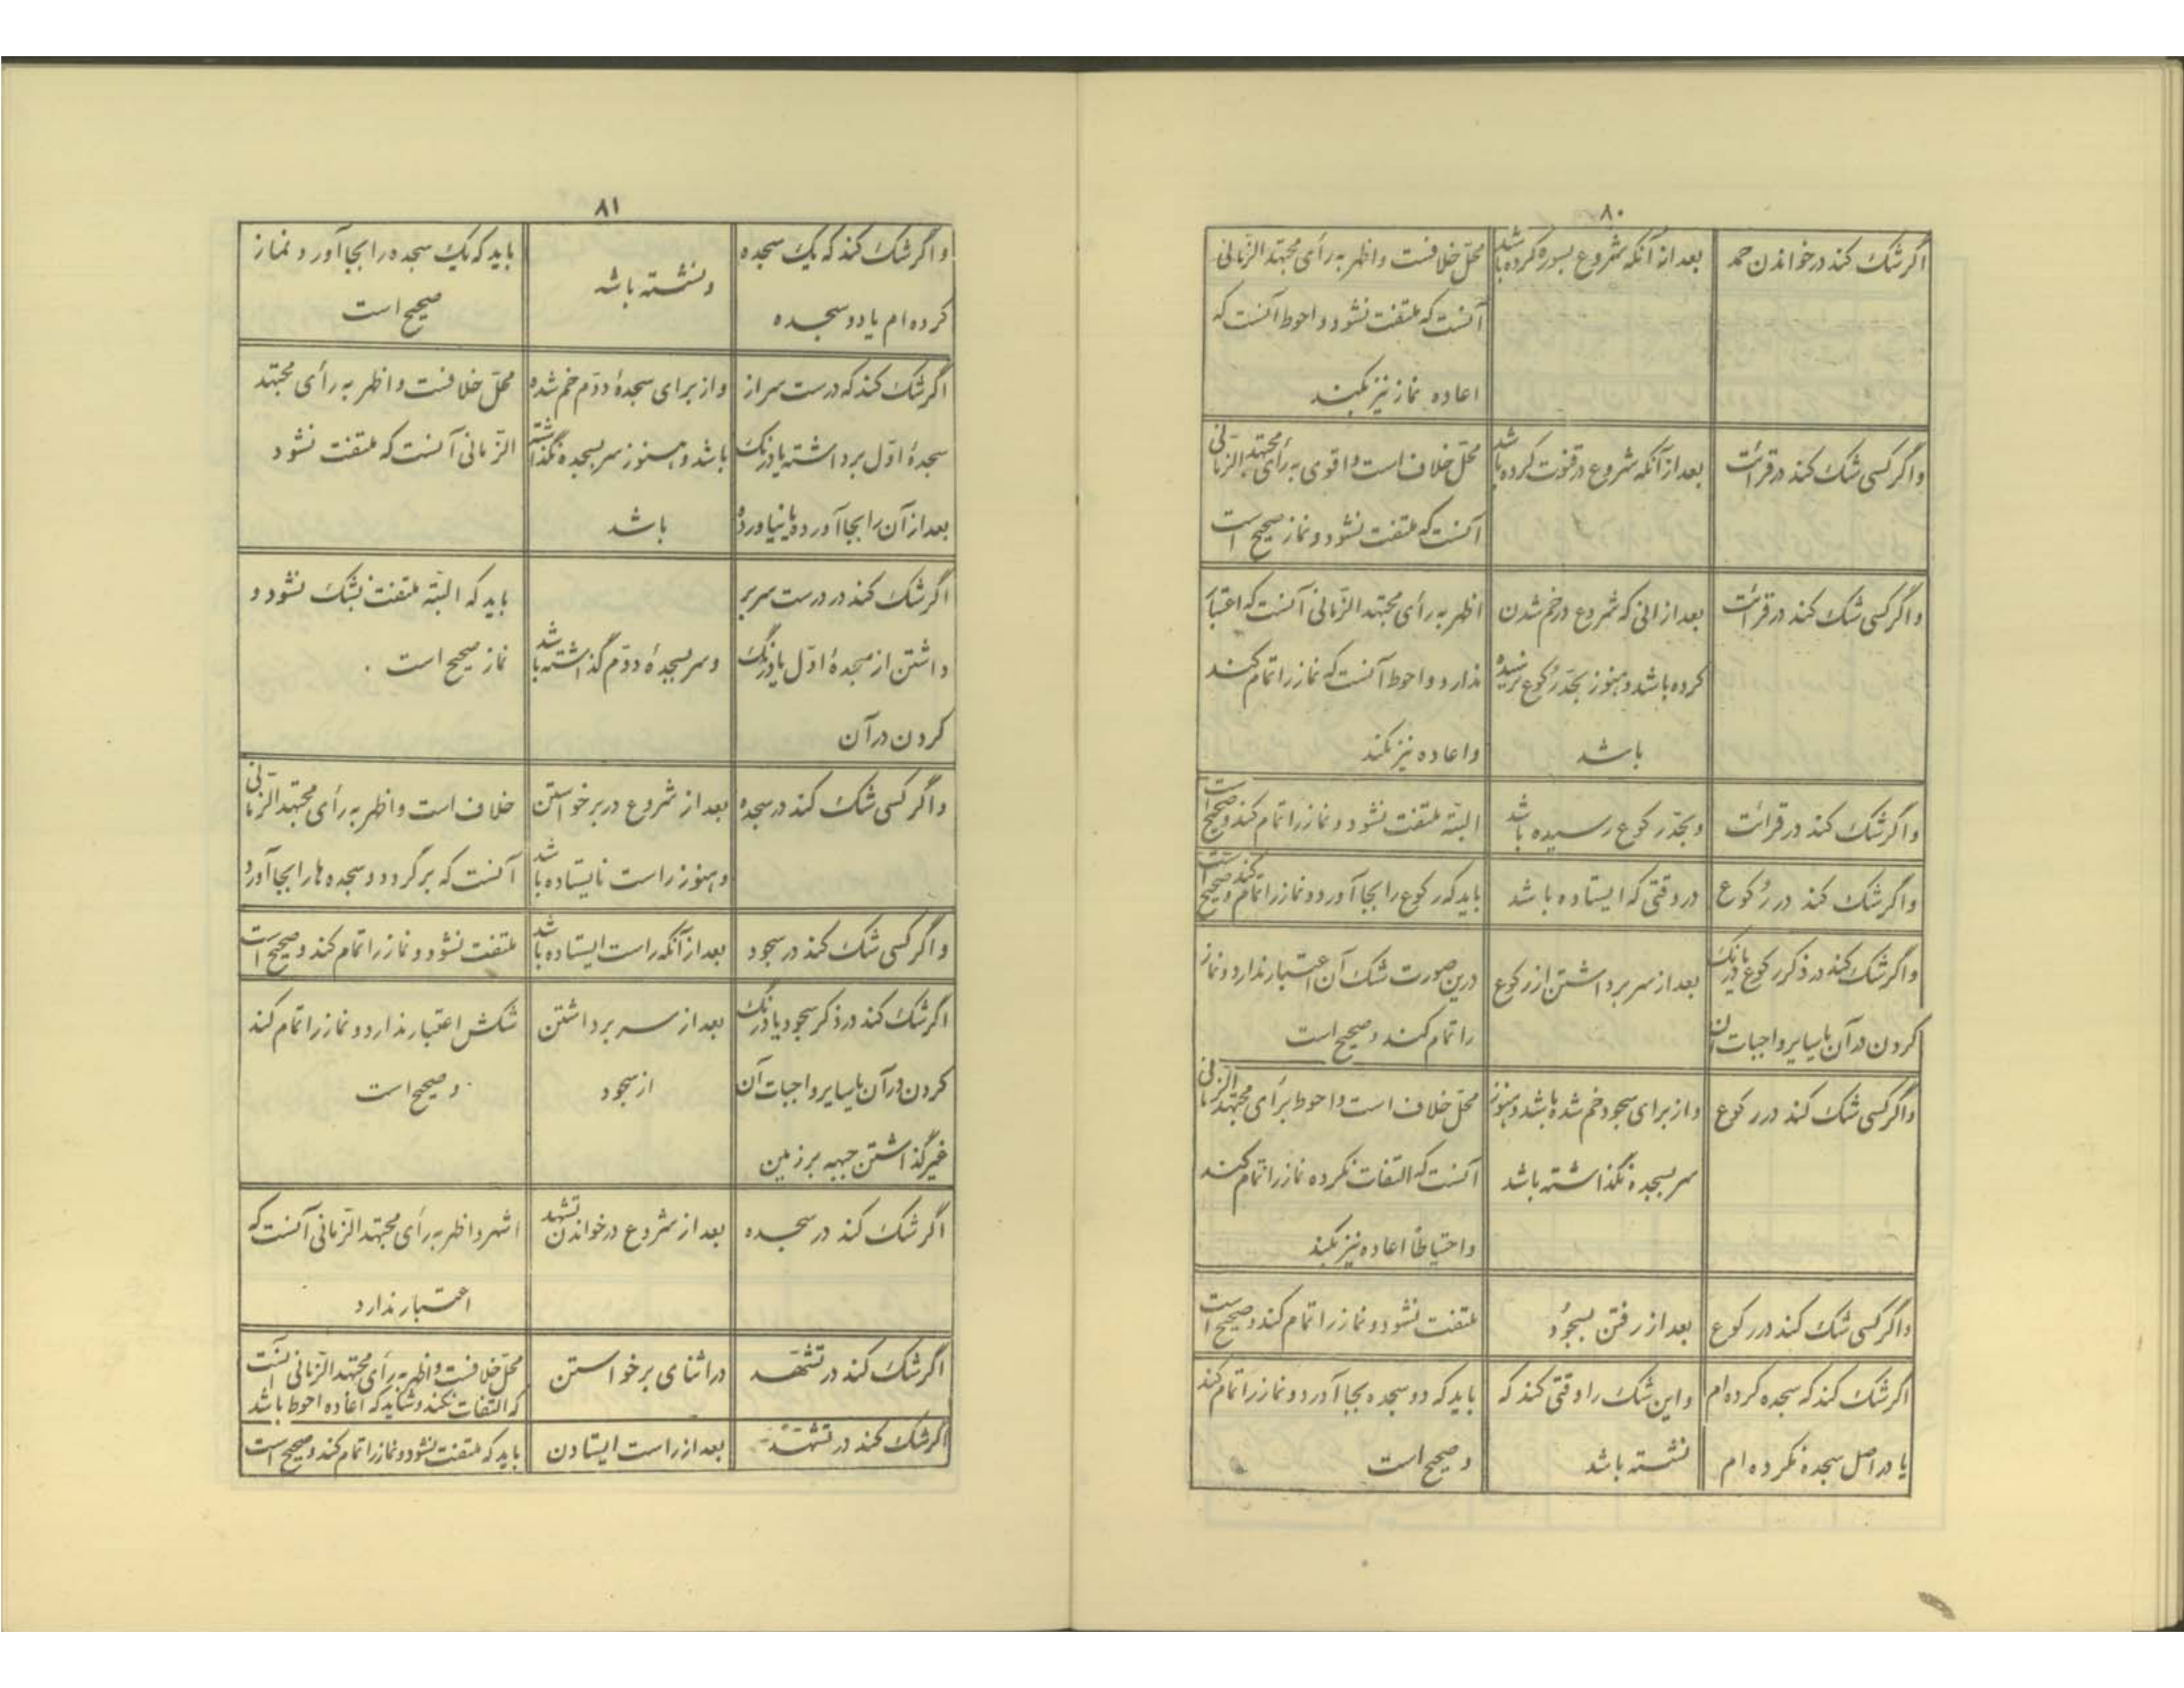 ۸۰
اگر شک کند در خواندن حمد
بعد از آنکه شروع بسوره کرده باشد
محلّ خلافست و اظهر به رأی مجتهد الزّمانی
آنست که ملتفت نشود و احوط آنست که
اعاده نماز نیز بکند
و اگر کسی شک کند در قرائت
بعد از آنکه شروع در قنوت کرده باشد
محلّ خلاف است و اقوی به رأی مجتهد الزّمانی
آنست که ملتفت نشود و نماز صحیح است
و اگر کسی شک کند در قرائت
بعد از انی که شروع در خم شدن
کرده باشد و هنوز بحدّ رکوع نرسیده
باشد
اظهر به رأی مجتهد الزّمانی آنست که اعتبار
ندارد و احوط آنست که نماز را تمام کند
و اعاده نیز بکند
و اگر شک کند در قرائت
و بحدّ رکوع رسیده باشد
البتّه ملتفت نشود و نماز را تمام کند و صحیح است
و اگر شک کند در رکوع
در وقتی که ایستاده باشد
باید که رکوع را بجا آورد و نماز را تمام کند و صحیح است
و اگر شک کند در ذکر رکوع یا درنگ
کردن در آن یا سایر واجبات آن
بعد از سر برداشتن از رکوع
درین صورت شک آن اعتبار ندارد و نماز
را تمام کند و صحیح است
و اگر کسی شک کند در رکوع
و از برای سجود خم شده باشد و هنوز
سر بسجده نگذاشته باشد
محلّ خلاف است و احوط برأی مجتهد الزّمانی
آنست که التفات نکرده نماز را تمام کند
و احتیاطاً اعاده نیز بکند
و اگر کسی شک کند در رکوع
بعد از رفتن بسجود
ملتفت نشود و نماز را تمام کند و صحیح است
اگر شک کند که سجده کرده ام
یا در اصل سجده نکرده ام
و این شک را وقتی کند که
نشسته باشد
باید که دو سجده بجا آورد و نماز را تمام کند
و صحیح است
۸۱
و اگر شک کند که یک سجده
کرده ام یا دو سجده
و نشسته باشد
باید که یک سجده را بجا آورد و نماز
صحیح است
اگر شک کند که درست سر از
سجدهٔ اوّل برداشته یا درنگ
بعد از آن را بجا آورده یا نیاورده
و از برای سجدهٔ دوّم خم شده
باشد و هنوز سر بسجده نگذاشته
باشد
محلّ خلافست و اظهر به رأی مجتهد
الزّمانی آنست که ملتفت نشود
اگر شک کند در درست سر بر
داشتن از سجدهٔ اوّل یا درنگ
کردن در آن
و سر بسجدهٔ دوّم گذاشته باشد
باید که البتّه ملتفت بشک نشود و
نماز صحیح است .
و اگر کسی شک کند در سجده
بعد از شروع در برخواستن
و هنوز راست نایستاده باشد
خلاف است و اظهر به رأی مجتهد الزّمانی
آنست که برگردد و سجده ها را بجا آورد
و اگر کسی شک کند در سجود
بعد از آنکه راست ایستاده باشد
ملتفت نشود و نماز را تمام کند و صحیح است
اگر شک کند در ذکر سجود یا درنگ
کردن در آن یا سایر واجبات آن
غیر گذاشتن جبهه بر زمین
بعد از سر برداشتن
از سجود
شکش اعتبار ندارد و نماز را تمام کند
و صحیح است
اگر شک کند در سجده
بعد از شروع در خواندن تشهد
اشهر و اظهر به رأی مجتهد الزّمانی آنست که
اعتبار ندارد
اگر شک کند در تشهّد
در اثنای برخواستن
محلّ خلافست و اظهر به رأی مجتهد الزّمانی آنست
که التفات نکند و شاید که اعاده احوط باشد
اگر شک کند در تشهّد
بعد از راست ایستادن
باید که ملتفت نشود و نماز را تمام کند و صحیح است